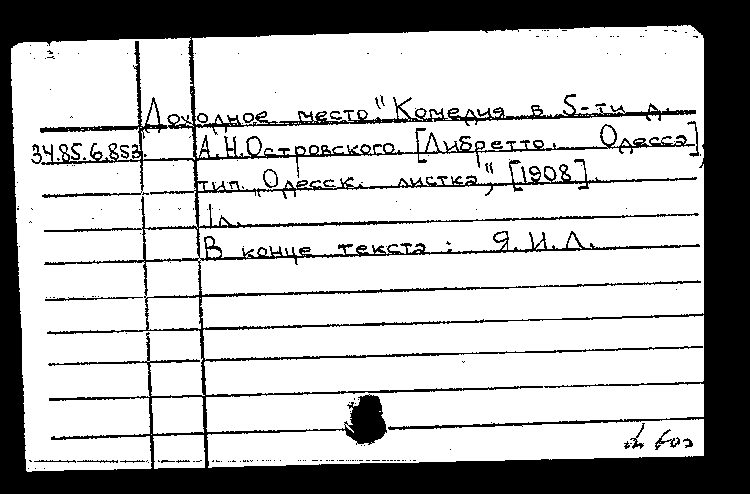 Доходное место." Комедия в 5-ти д.
34.85.6.853. А.Н.Островского. [Либретто. Одесса],
тип. „Одесск. листка", [1908].
1л.
В конце текста: Я.И.Л.